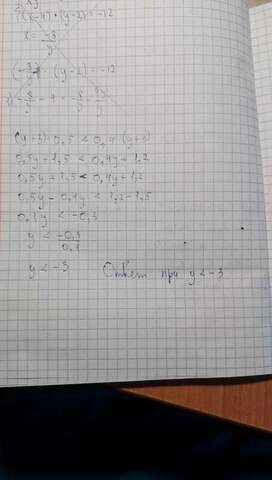 (x-4)·(y-2)=-12
x = -3/y
· (y-2) = -12
(y+3)·0,5 < 0,4·(y+3)
0,5y+1,5 < 0,4y+1,2
0,5y+1,5 < 0,4y+1,2
0,5y-0,4y < 1,2-1,5
0,1y < -0,3
y < -0,3/0,1
y < -3 Ответ при y < -3